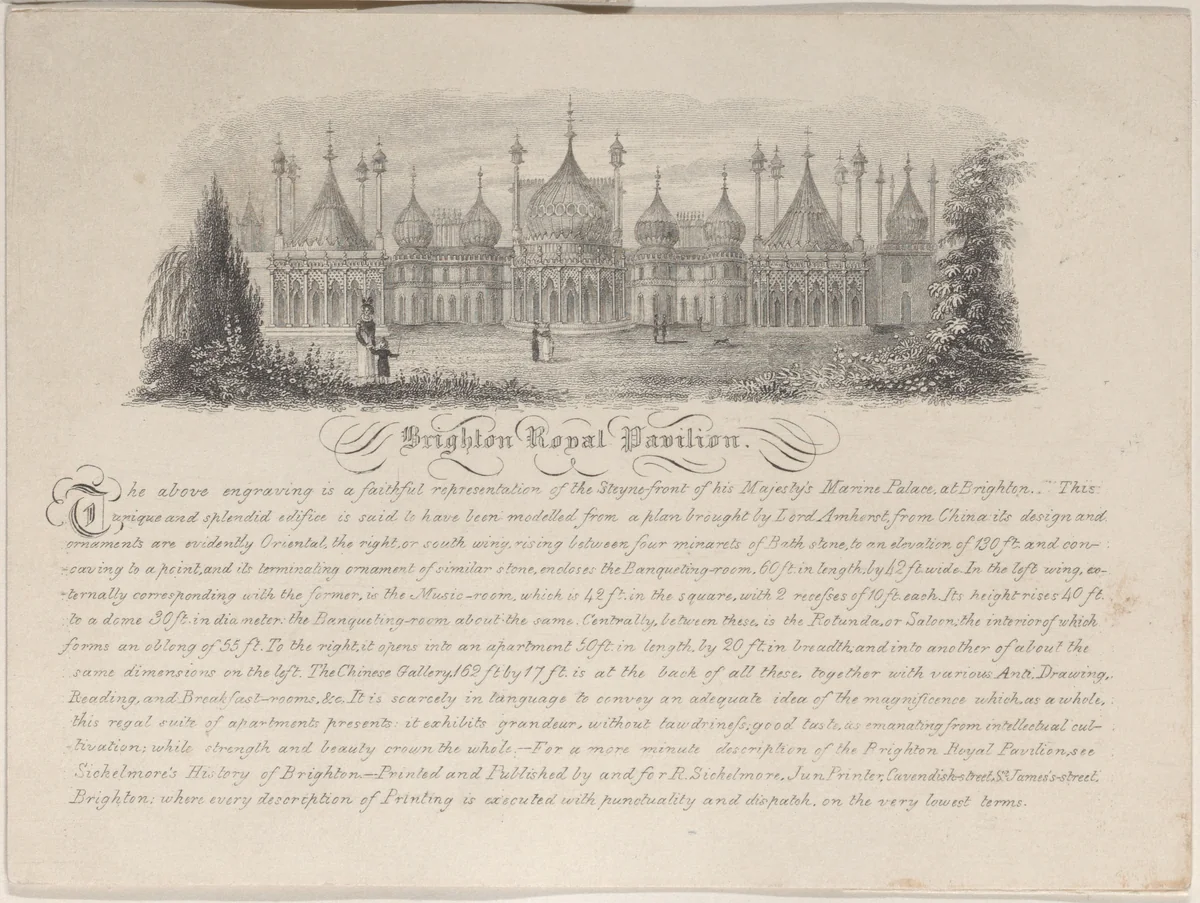 Brighton Royal Pavilion.
The above engraving is a faithful representation of the Steyne-front of his Majesty's Marine Palace, at Brighton. This
unique and splendid edifice is said to have been modelled from a plan brought by Lord Amherst, from China: its design and
ornaments are evidently Oriental, the right, or south wing, rising between four minarets of Bath stone, to an elevation of 130 ft. and con-
-caving to a point, and its terminating ornament of similar stone, encloses the Banqueting-room, 60 ft. in length, by 42 ft. wide. In the left wing, ex-
-ternally corresponding with the former, is the Music-room, which is 42 ft. in the square, with 2 recesses of 10 ft. each. Its height rises 40 ft.
to a dome 30 ft. in diameter: the Banqueting-room about the same. Centrally, between these, is the Rotunda, or Saloon, the interior of which
forms an oblong of 55 ft. To the right, it opens into an apartment 50 ft. in length, by 20 ft. in breadth, and into another of about the
same dimensions on the left. The Chinese Gallery, 162 ft by 17 ft. is at the back of all these, together with various Anti, Drawing,
Reading, and Breakfast-rooms, &c. It is scarcely in language to convey an adequate idea of the magnificence which, as a whole,
this regal suite of apartments presents: it exhibits grandeur, without tawdriness, good taste, as emanating from intellectual cul-
-tivation; while strength and beauty crown the whole.—For a more minute description of the Brighton Royal Pavilion, see
Sickelmore's History of Brighton.—Printed and Published by and for R. Sickelmore, Jun. Printer, Cavendish-street, St. James's-street,
Brighton; where every description of Printing is executed with punctuality and dispatch, on the very lowest terms.